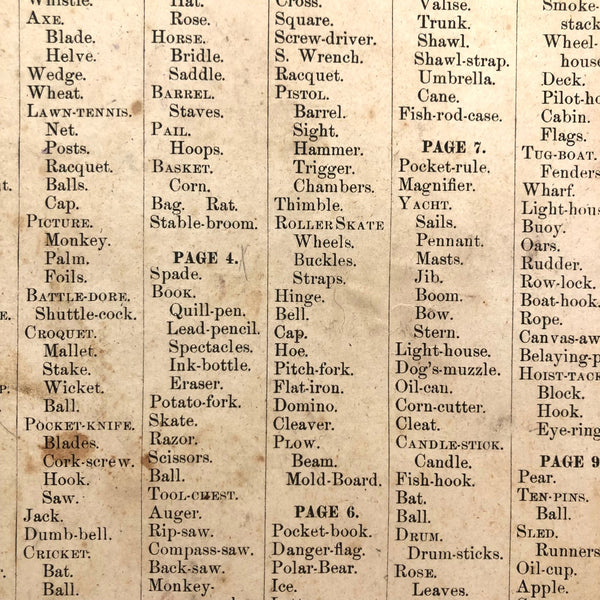 Whistle.
AXE.
Blade.
Helve.
Wedge.
Wheat.
LAWN-TENNIS.
Net.
Posts.
Racquet.
Balls.
Cap.
PICTURE.
Monkey.
Palm.
Foils.
BATTLE-DORE.
Shuttle-cock.
CROQUET.
Mallet.
Stake.
Wicket.
Ball.
POCKET-KNIFE.
Blades.
Cork-screw.
Hook.
Saw.
Jack.
Dumb-bell.
CRICKET.
Bat.
Ball.
Hat.
Rose.
HORSE.
Bridle.
Saddle.
BARREL.
Staves.
PAIL.
Hoops.
BASKET.
Corn.
Bag. Rat.
Stable-broom.
PAGE 4.
Spade.
BOOK.
Quill-pen.
Lead-pencil.
Spectacles.
Ink-bottle.
Eraser.
Potato-fork.
Skate.
Razor.
Scissors.
Ball.
TOOL-CHEST.
Auger.
Rip-saw.
Compass-saw.
Back-saw.
Monkey-
Cross.
Square.
Screw-driver.
S. Wrench.
Racquet.
PISTOL.
Barrel.
Sight.
Hammer.
Trigger.
Chambers.
Thimble.
ROLLER SKATE
Wheels.
Buckles.
Straps.
Hinge.
Bell.
Cap.
Hoe.
Pitch-fork.
Flat-iron.
Domino.
Cleaver.
PLOW.
Beam.
Mold-Board.
PAGE 6.
Pocket-book.
Danger-flag.
Polar-Bear.
Ice.
Valise.
Trunk.
Shawl.
Shawl-strap.
Umbrella.
Cane.
Fish-rod-case.
PAGE 7.
Pocket-rule.
Magnifier.
YACHT.
Sails.
Pennant.
Masts.
Jib.
Boom.
Bow.
Stern.
Light-house.
Dog's-muzzle.
Oil-can.
Corn-cutter.
Cleat.
CANDLE-STICK.
Candle.
Fish-hook.
Bat.
Ball.
DRUM.
Drum-sticks.
ROSE.
Leaves.
Smoke-
stack
Wheel-
hous
Deck.
Pilot-ho
Cabin.
Flags.
TUG-BOAT.
Fenders
Wharf.
Light-hous
Buoy.
Oars.
Rudder.
Row-lock.
Boat-hook.
Rope.
Canvas-aw
Belaying-p
HOIST-TACK
Block.
Hook.
Eye-ring
PAGE 9
Pear.
TEN-PINS.
Ball.
SLED.
Runners
Oil-cup.
Apple.